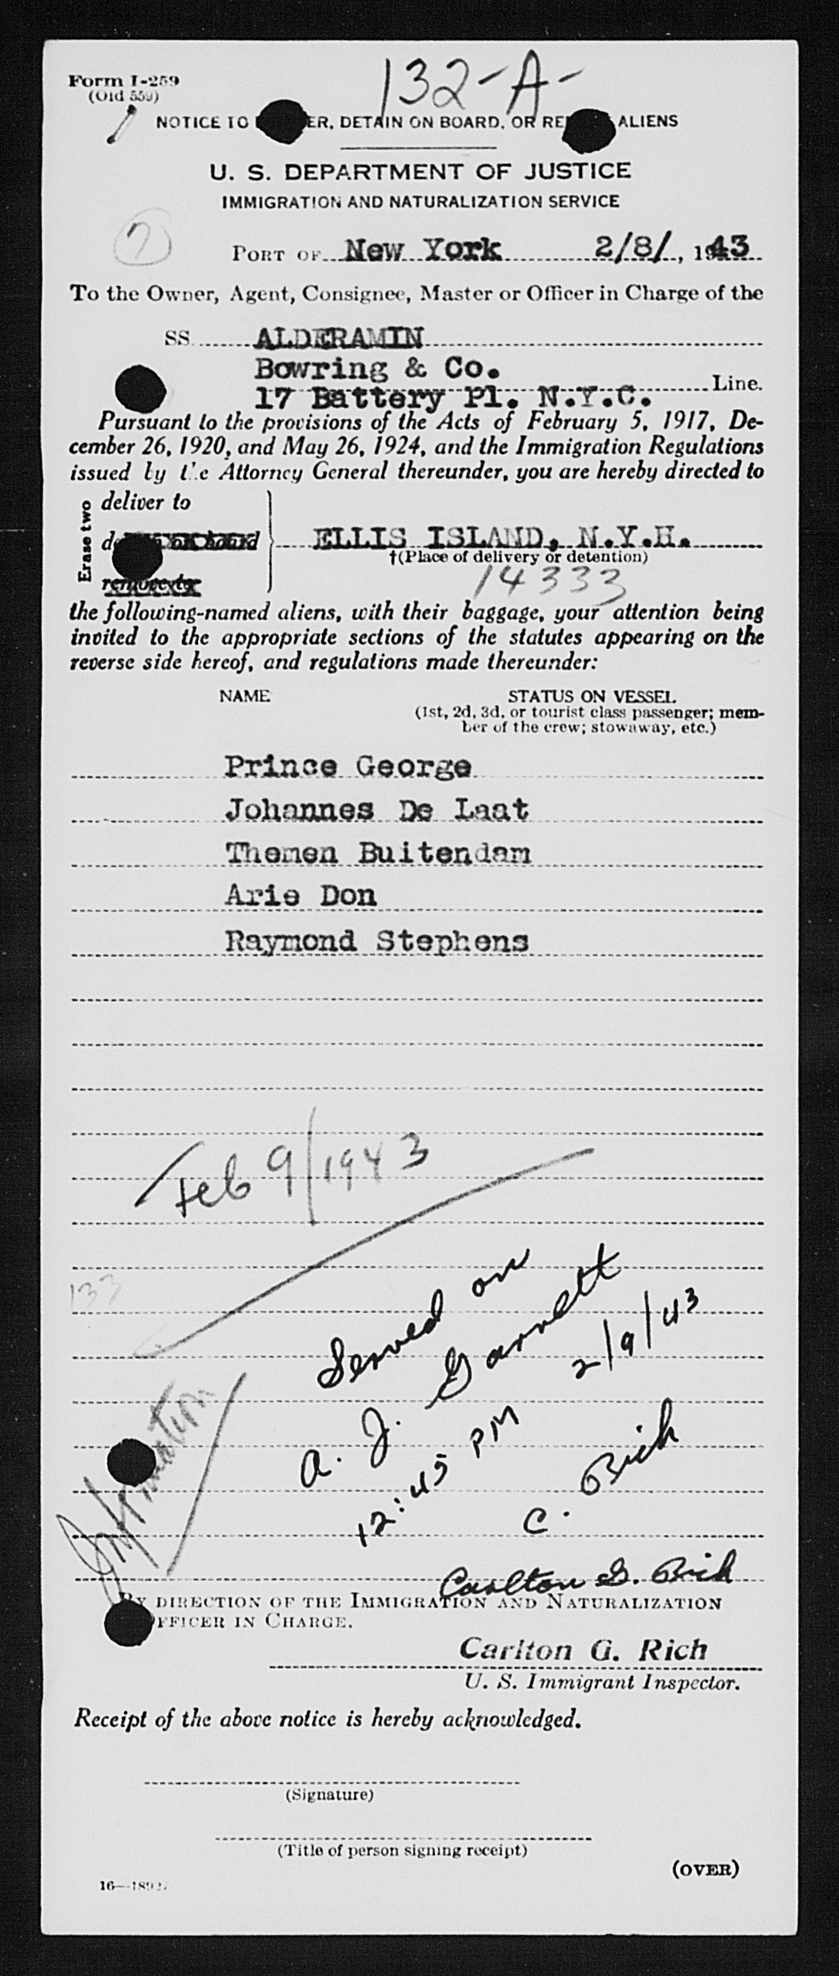 Form I-259
(Old 559)
132-A-
NOTICE TO ER, DETAIN ON BOARD, OR RE ALIENS
U. S. DEPARTMENT OF JUSTICE
IMMIGRATION AND NATURALIZATION SERVICE
7
PORT OF New York 2/8/, 1943
To the Owner, Agent, Consignee, Master or Officer in Charge of the
SS ALDERAMIN
Bowring & Co.
17 Battery Pl. N.Y.C. Line.
Pursuant to the provisions of the Acts of February 5, 1917, De-
cember 26, 1920, and May 26, 1924, and the Immigration Regulations
issued by the Attorney General thereunder, you are hereby directed to
Erase two
deliver to
ELLIS ISLAND, N.Y.H.
†(Place of delivery or detention)
14333
the following-named aliens, with their baggage, your attention being
invited to the appropriate sections of the statutes appearing on the
reverse side hereof, and regulations made thereunder:
NAME STATUS ON VESSEL
(1st, 2d, 3d, or tourist class passenger; mem-
ber of the crew; stowaway, etc.)
Prince George
Johannes De Laat
Themen Buitendam
Arie Don
Raymond Stephens
Feb 9/1943
133
Served on
A. J. Garrett
12:45 PM 2/9/43
C. Rich
Information
Carlton G. Rich
BY DIRECTION OF THE IMMIGRATION AND NATURALIZATION
OFFICER IN CHARGE.
Carlton G. Rich
U. S. Immigrant Inspector.
Receipt of the above notice is hereby acknowledged.
(Signature)
(Title of person signing receipt)
(OVER)